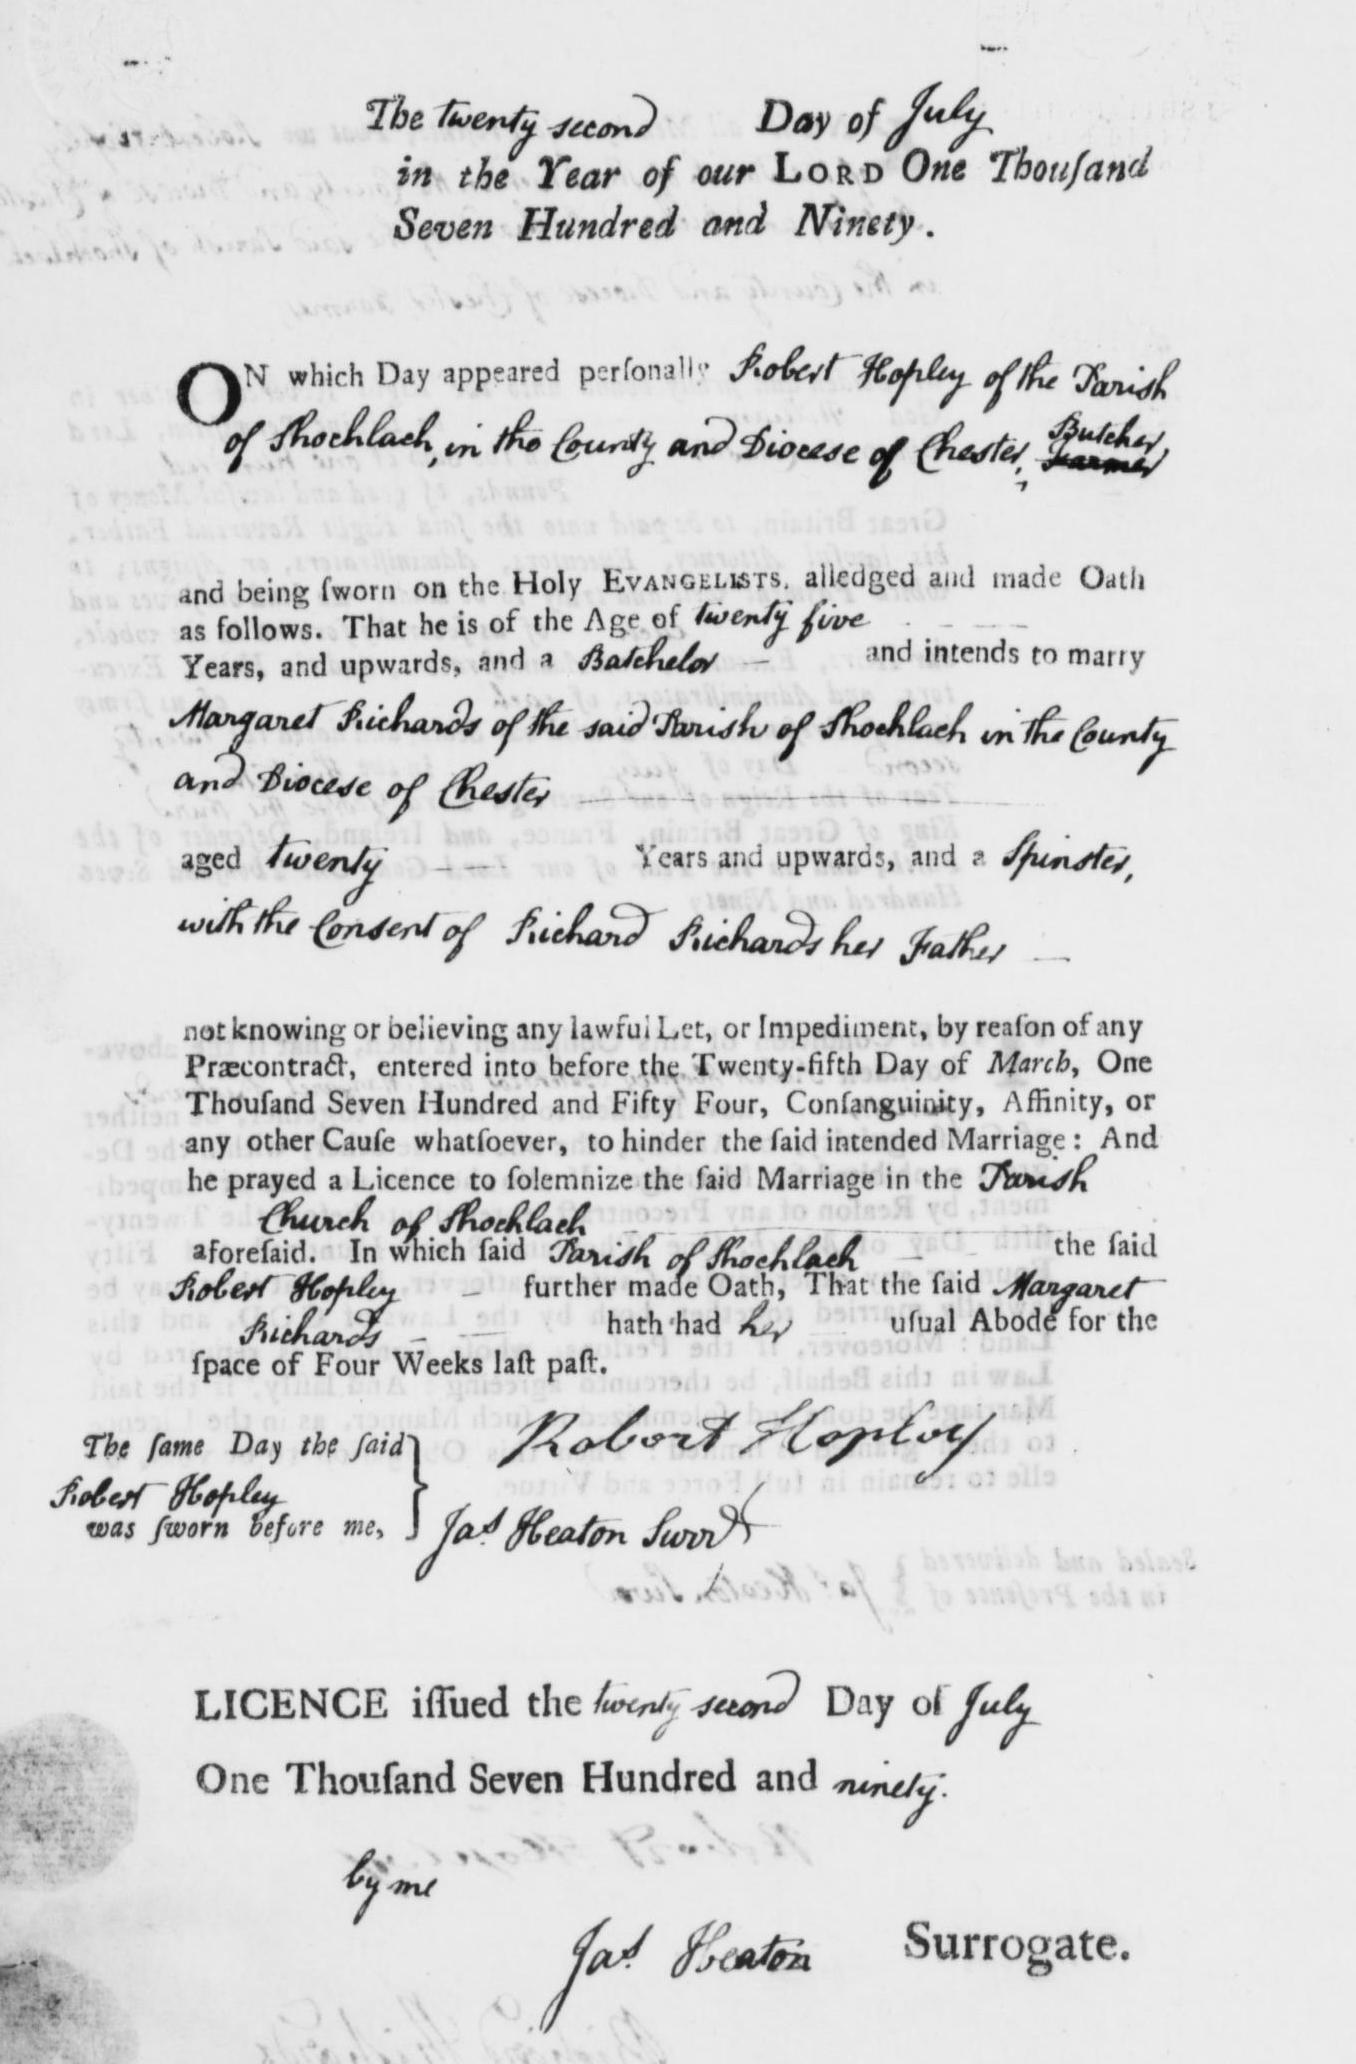 The twenty second Day of July
in the Year of our LORD One Thouſand
Seven Hundred and Ninety.
ON which Day appeared perſonally Robert Hopley of the Parish
of Shochlach, in the County and Diocese of Chester, Butcher,
Farmer
and being ſworn on the Holy EVANGELISTS, alledged and made Oath
as follows. That he is of the Age of twenty five
Years, and upwards, and a Batchelor — and intends to marry
Margaret Richards of the said Parish of Shochlach in the County
and Diocese of Chester
aged twenty — Years and upwards, and a Spinster,
with the Consent of Richard Richards her Father —
not knowing or believing any lawful Let, or Impediment, by reaſon of any
Præcontract, entered into before the Twenty-fifth Day of March, One
Thouſand Seven Hundred and Fifty Four, Conſanguinity, Affinity, or
any other Cauſe whatſoever, to hinder the ſaid intended Marriage: And
he prayed a Licence to ſolemnize the ſaid Marriage in the Parish
Church of Shochlach
aforeſaid. In which ſaid Parish of Shochlach — the ſaid
Robert Hopley — further made Oath, That the ſaid Margaret
Richards — hath had her uſual Abode for the
ſpace of Four Weeks laſt paſt.
Robert Hopley
The ſame Day the ſaid
Robert Hopley
was ſworn before me,
Jas. Heaton Surrt
LICENCE iſſued the twenty second Day of July
One Thouſand Seven Hundred and ninety.
by me
Jas. Heaton Surrogate.